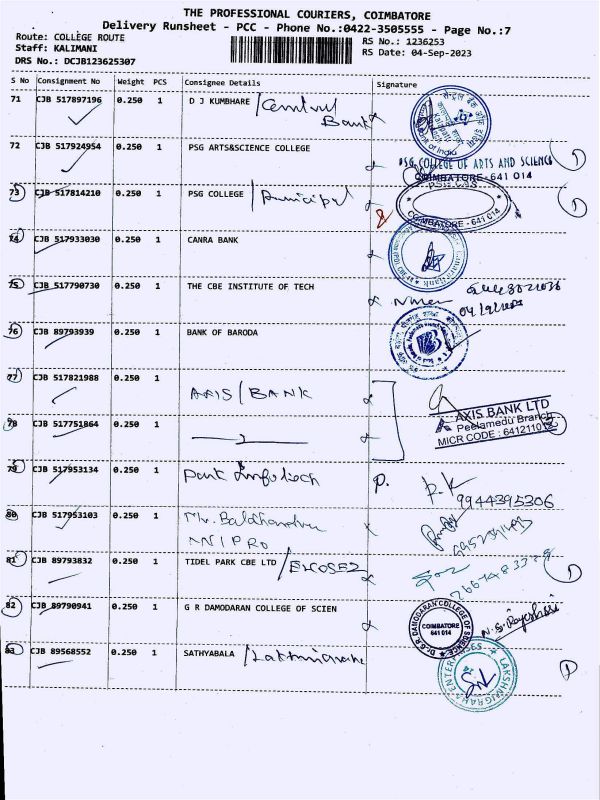 THE PROFESSIONAL COURIERS, COIMBATORE
Delivery Runsheet - PCC - Phone No.:0422-3505555 - Page No.:7
Route: COLLEGE ROUTE
Staff: KALIMANI
DRS No.: DCJB123625307
RS No.: 1236253
RS Date: 04-Sep-2023
S No Consignment No Weight PCS Consignee Details Signature
71 CJB 517897196 0.250 1 D J KUMBHARE / Central Bank
72 CJB 517924954 0.250 1 PSG ARTS&SCIENCE COLLEGE
PSG COLLEGE OF ARTS AND SCIENCE
COIMBATORE - 641 014
73 CJB 517814210 0.250 1 PSG COLLEGE / Principal
PSG CAS
COIMBATORE - 641 014
74 CJB 517933030 0.250 1 CANRA BANK
75 CJB 517790730 0.250 1 THE CBE INSTITUTE OF TECH
76 CJB 89793939 0.250 1 BANK OF BARODA
77 CJB 517821988 0.250 1 AXIS / BANK
AXIS BANK LTD
Peelamedu Branch
78 CJB 517751864 0.250 1
79 CJB 517953134 0.250 1 Park Infotech
P. K
9944395306
80 CJB 517953103 0.250 1 Mr.
81 CJB 89793832 0.250 1 TIDEL PARK CBE LTD /
82 CJB 89790941 0.250 1 G R DAMODARAN COLLEGE OF SCIEN
Dr. G.R. DAMODARAN COLLEGE OF SCIENCE
COIMBATORE
641 014
83 CJB 89568552 0.250 1 SATHYABALA /
LAKSHMIGRAH ENTERPRISES